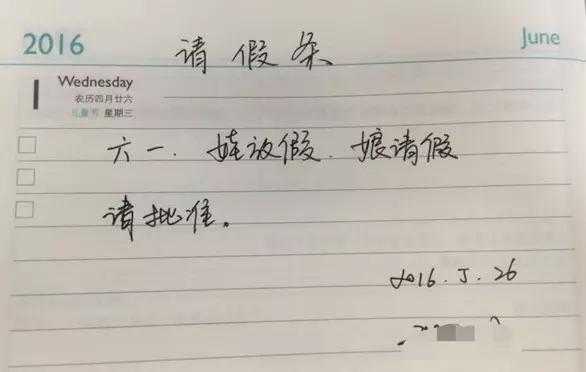 2016
June
请假条
1
Wednesday
农历四月廿六
儿童节 星期三
六一.娃放假.娘请假
请批准。
2016.5.26